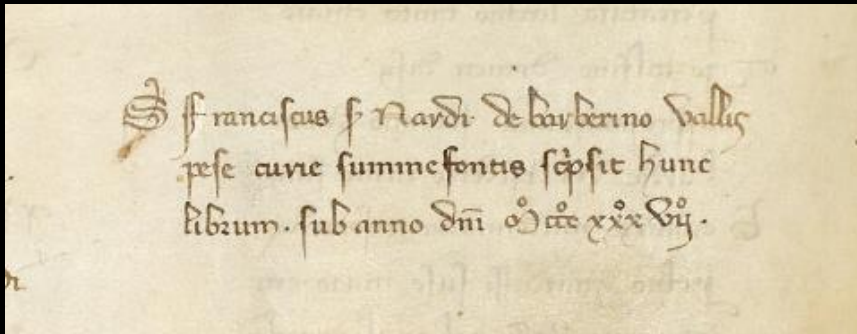 S franciscus s Nardi de barberino vallis
pese curie summefontis scpsit hunc
librum. sub anno dni Mo ccco xxxo vijo.